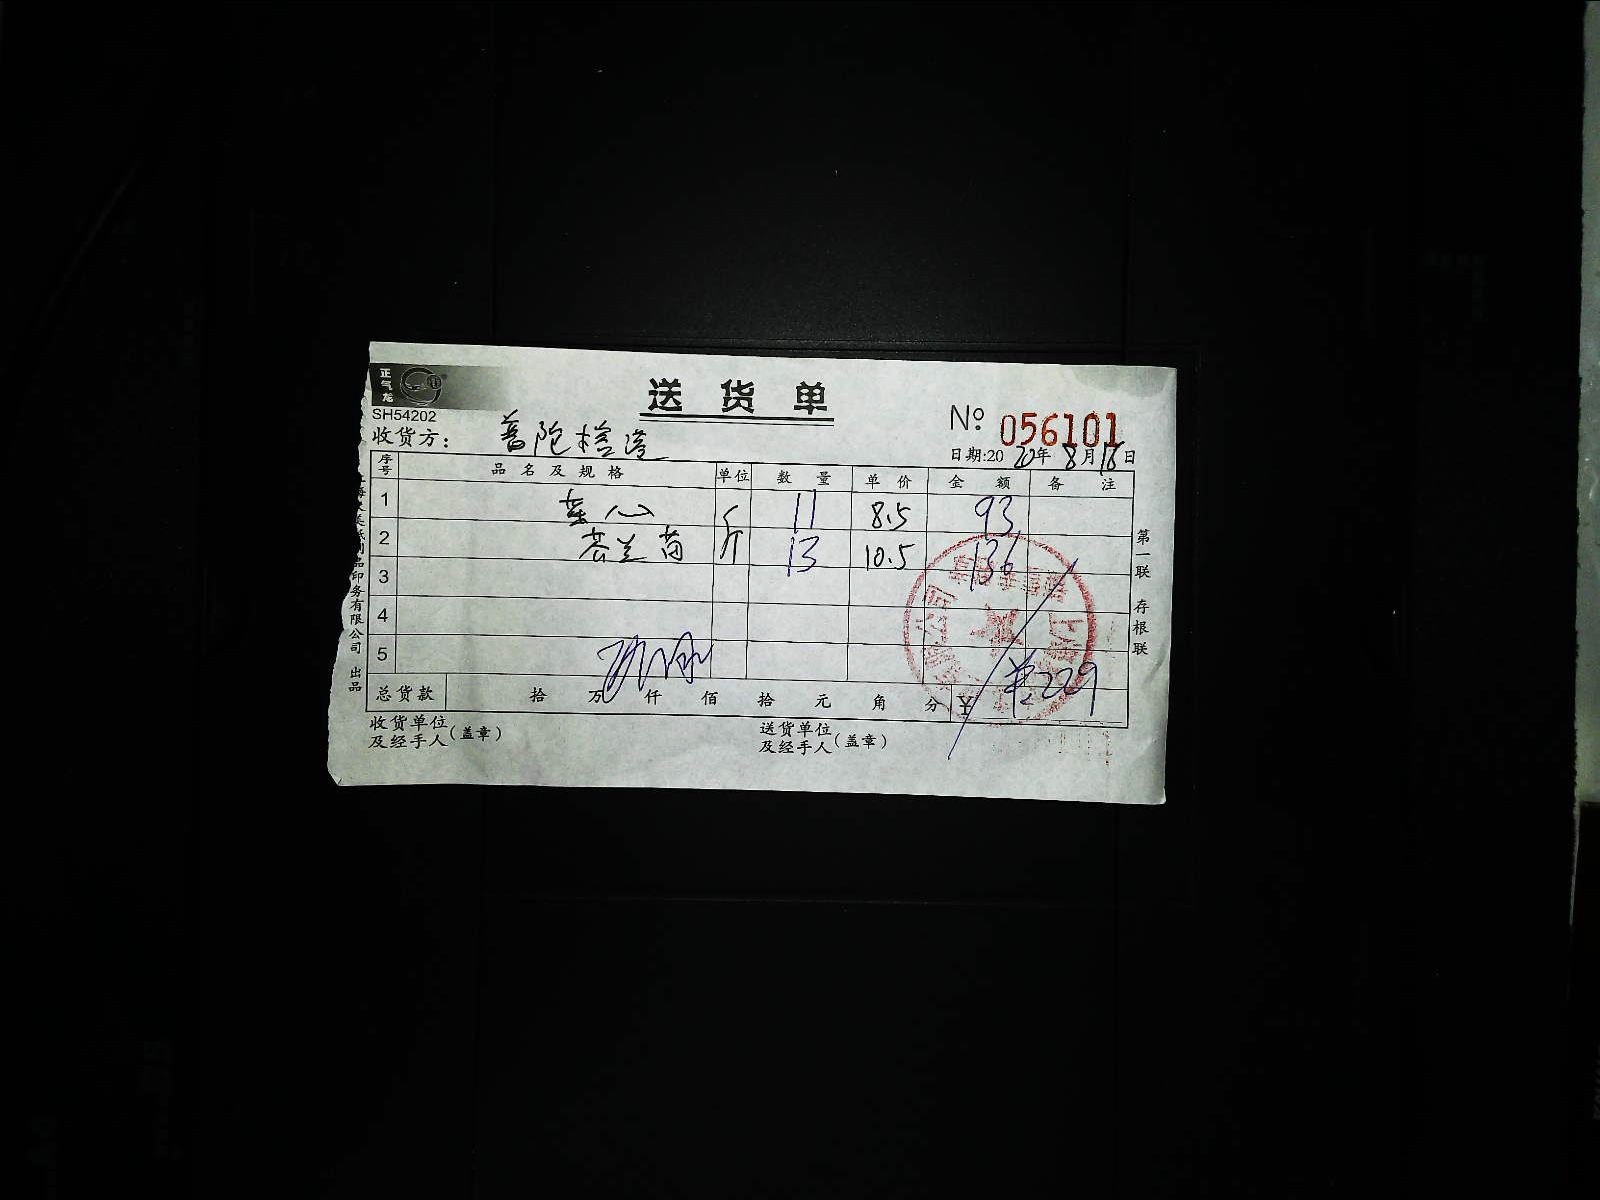 正气龙
SH54202
送货单
No 056101
收货方: 普陀檀港
日期:2020年8月16日
序号 品名及规格 单位 数量 单价 金额 备注
1 菜心 斤 11 8.5 93
2 芥兰苗 斤 13 10.5 136
3
4
5
总货款 拾 万 仟 佰 拾 元 角 分 ¥229
收货单位及经手人(盖章)
送货单位及经手人(盖章)
第一联 存根联
印务有限公司 出品